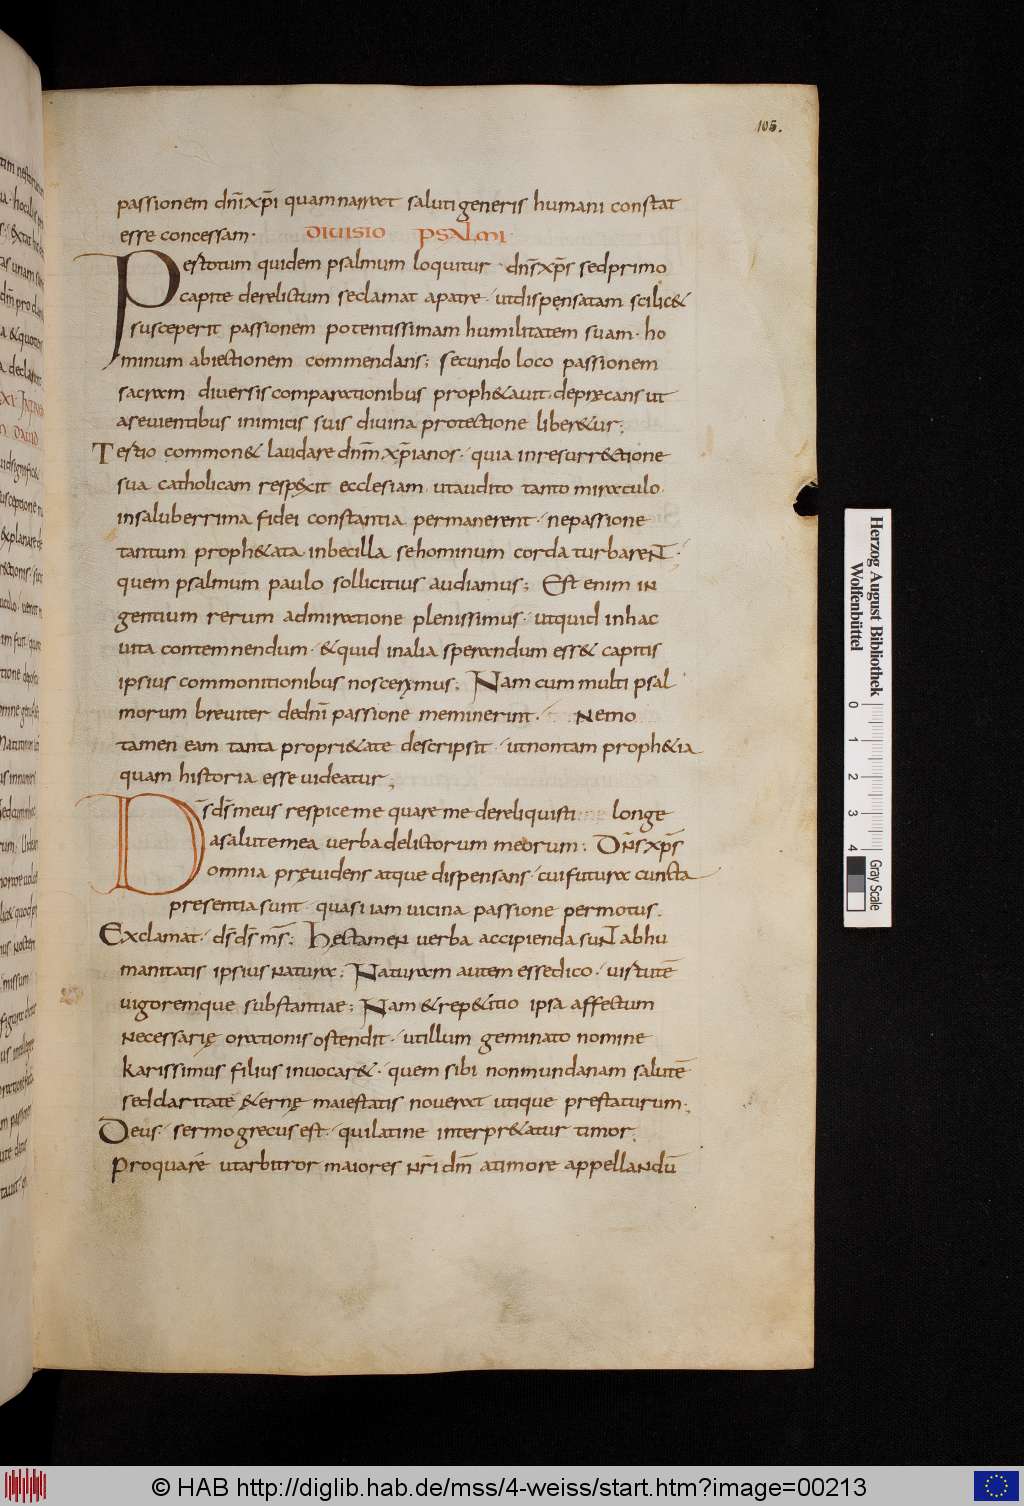 105.
passionem dn̄i xp̄i quam narrat saluti generis humani constat
esse concessam· DIUISIO PSALMI
Per totum quidem psalmum loquitur · dn̄s xp̄s sed primo
capite derelictum se clamat a patre · ut dispensatam scilic&
susceperit passionem potentissimam humilitatem suam · ho
minum abiectionem commendans; secundo loco passionem
sacram diversis comparationibus proph&auit · deprecans ut
a sevientibus inimicis suis divina protectione liber&ur;
Tertio common& laudare dn̄m xp̄ianos · quia in resurr&ctione
sua catholicam respexit ecclesiam · ut audito tanto miraculo
in saluberrima fidei constantia permanerent · ne passione
tantum proph&ata inbecilla se hominum corda turbarent ·
quem psalmum paulo sollicitius audiamus; Est enim in
gentium rerum admiratione plenissimus · ut quid in hac
uita contemnendum · & quid in alia sperandum ess& capitis
ipsius commonitionibus noscerẹmus; Nam cum multi psal
morum breviter de dn̄i passione meminerint · Nemo
tamen eam tanta propri&ate descripsit · ut non tam proph&ia
quam historia esse uideatur;
D̄s ds̄ meus respice me quare me dereliquisti longe
a salute mea verba delictorum meorum; Dn̄s xp̄s
omnia pręvidens atque dispensans · cui futura cuncta
presentia sunt · quasi iam vicina passione permotus.
Exclamat · ds̄ ds̄ ms̄; Hęc tamen verba accipienda sunt ab hu
manitatis ipsius natura; Naturam autem esse dico · uirtutē
uigoremque substantiae; Nam & rep&itio ipsa affectum
necessarię orationis ostendit · ut illum geminato nomine
karissimus filius invocar& · quem sibi non mundanam salutē
sed claritate &ernę maiestatis noverat utique prestaturum;
Deus · sermo grecus est · qui latine interpr&atur timor.
Proquare ut arbitror maiores nr̄i dm̄ a timore appellandū
Herzog August Bibliothek
Wolfenbüttel
0 1 2 3 4
Gray Scale
© HAB http://diglib.hab.de/mss/4-weiss/start.htm?image=00213